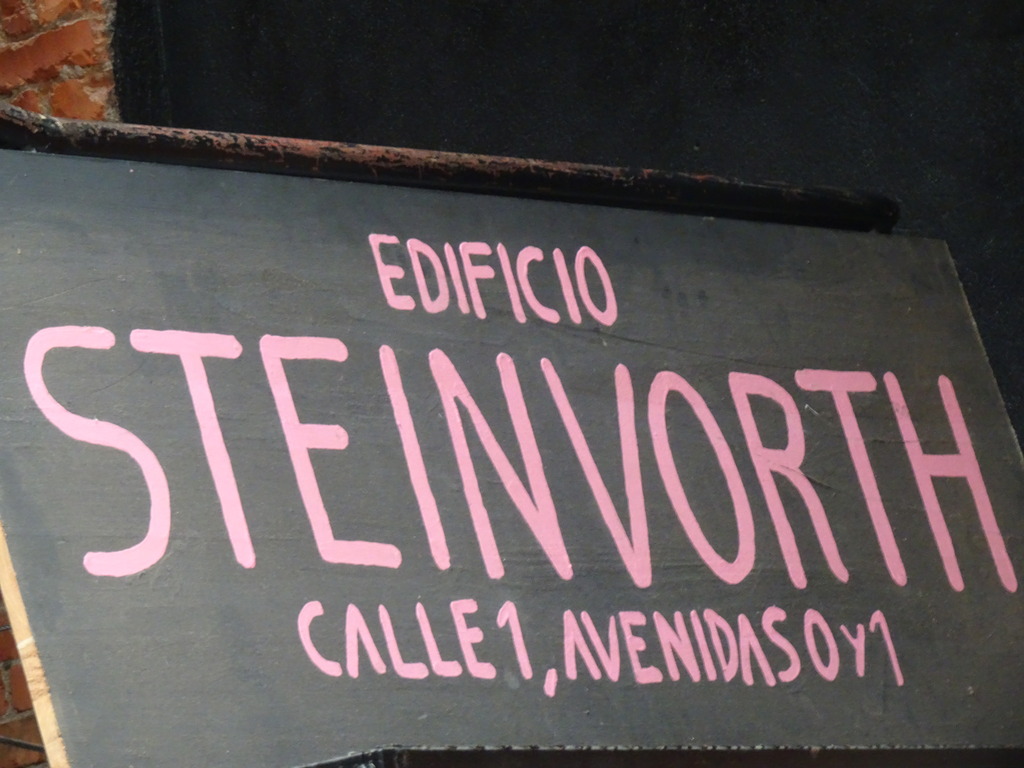 EDIFICIO
STEINVORTH
CALLE 1, AVENIDAS 0 Y 1